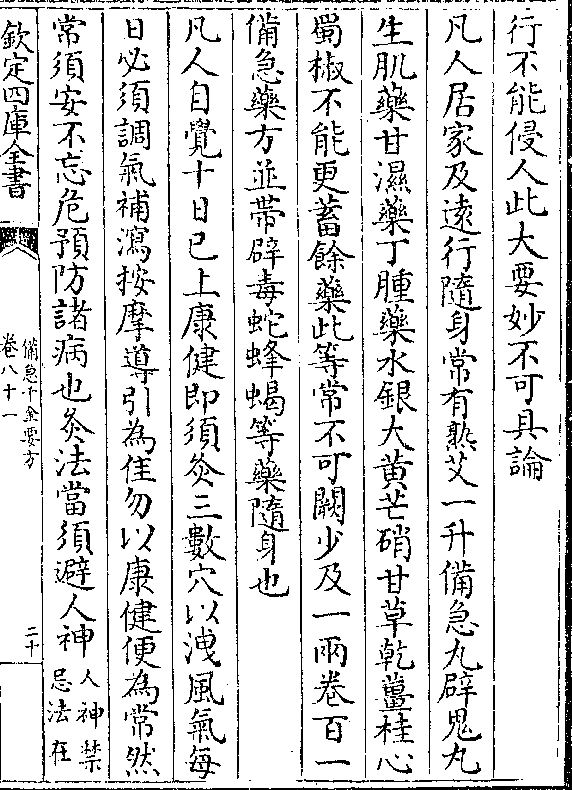 行不能侵人此大要妙不可具論
凡人居家及遠行隨身常有熟艾一升備急丸辟鬼丸
生肌藥甘濕藥丁腫藥水銀大黄芒硝甘草乾薑桂心
蜀椒不能更蓄餘藥此等常不可闕少及一兩卷百一
備急藥方並帶辟毒蛇蜂蝎等藥隨身也
凡人自覺十日已上康健即須灸三數穴以洩風氣每
日必須調氣補瀉按摩導引為佳勿以康健便為常然
常須安不忘危預防諸病也灸法當須避人神人神禁
忌法在
欽定四庫全書
備急千金要方
卷八十一
二十